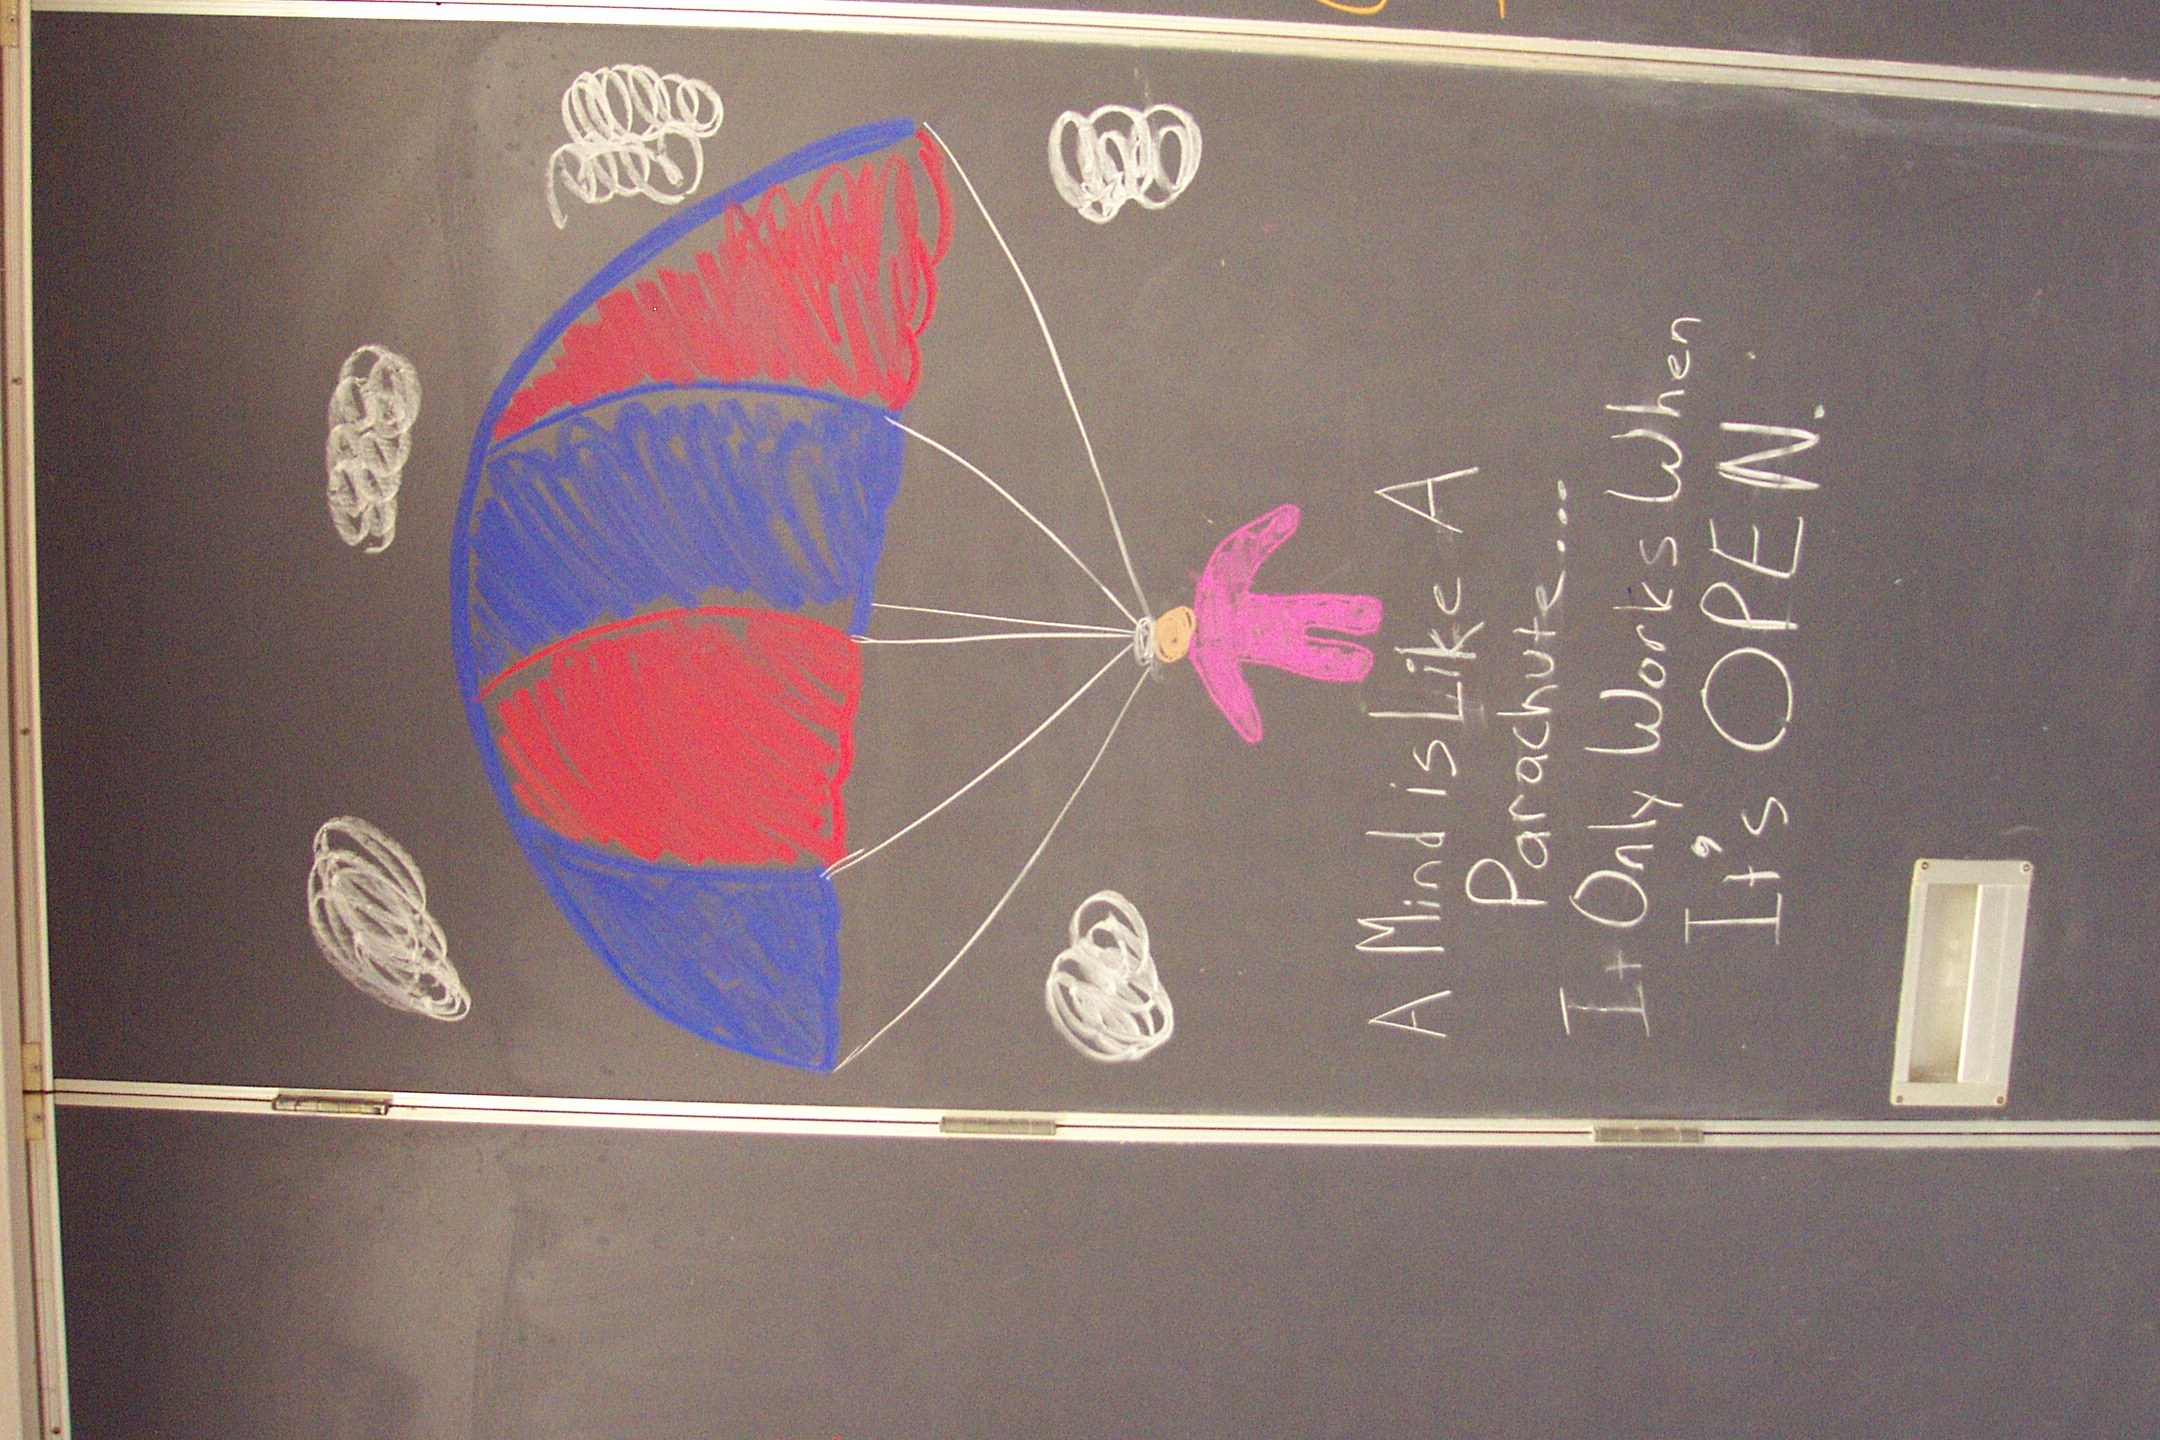 A Mind is Like A
Parachute....
It Only Works When
It's OPEN.